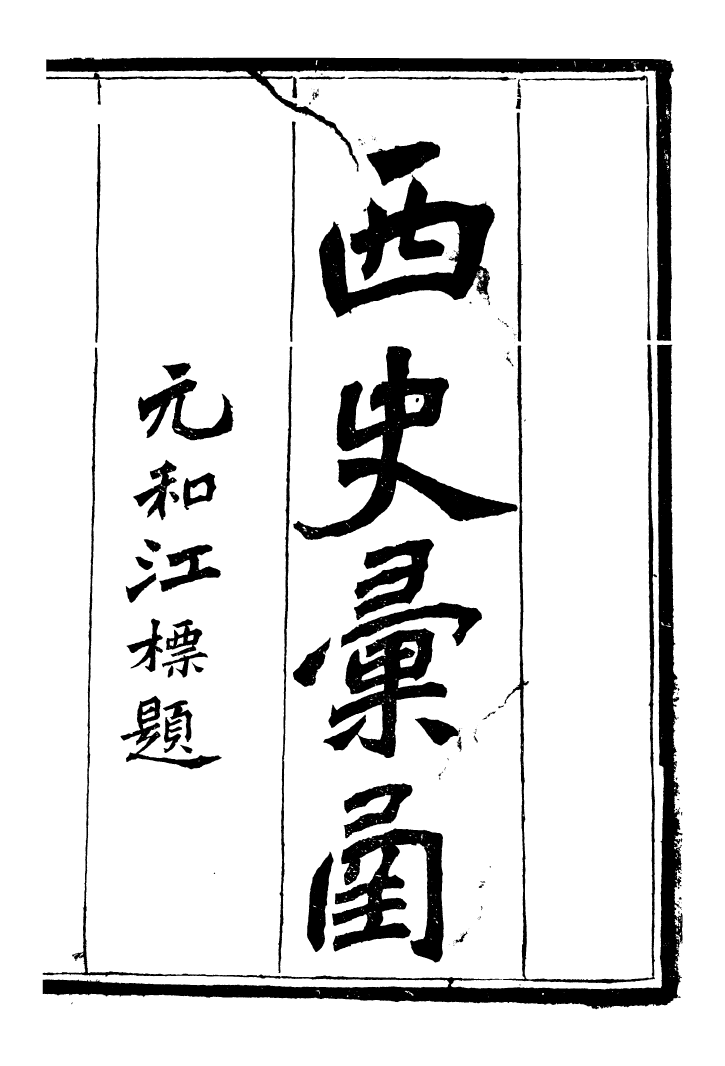 西史彙圅
元和江標題